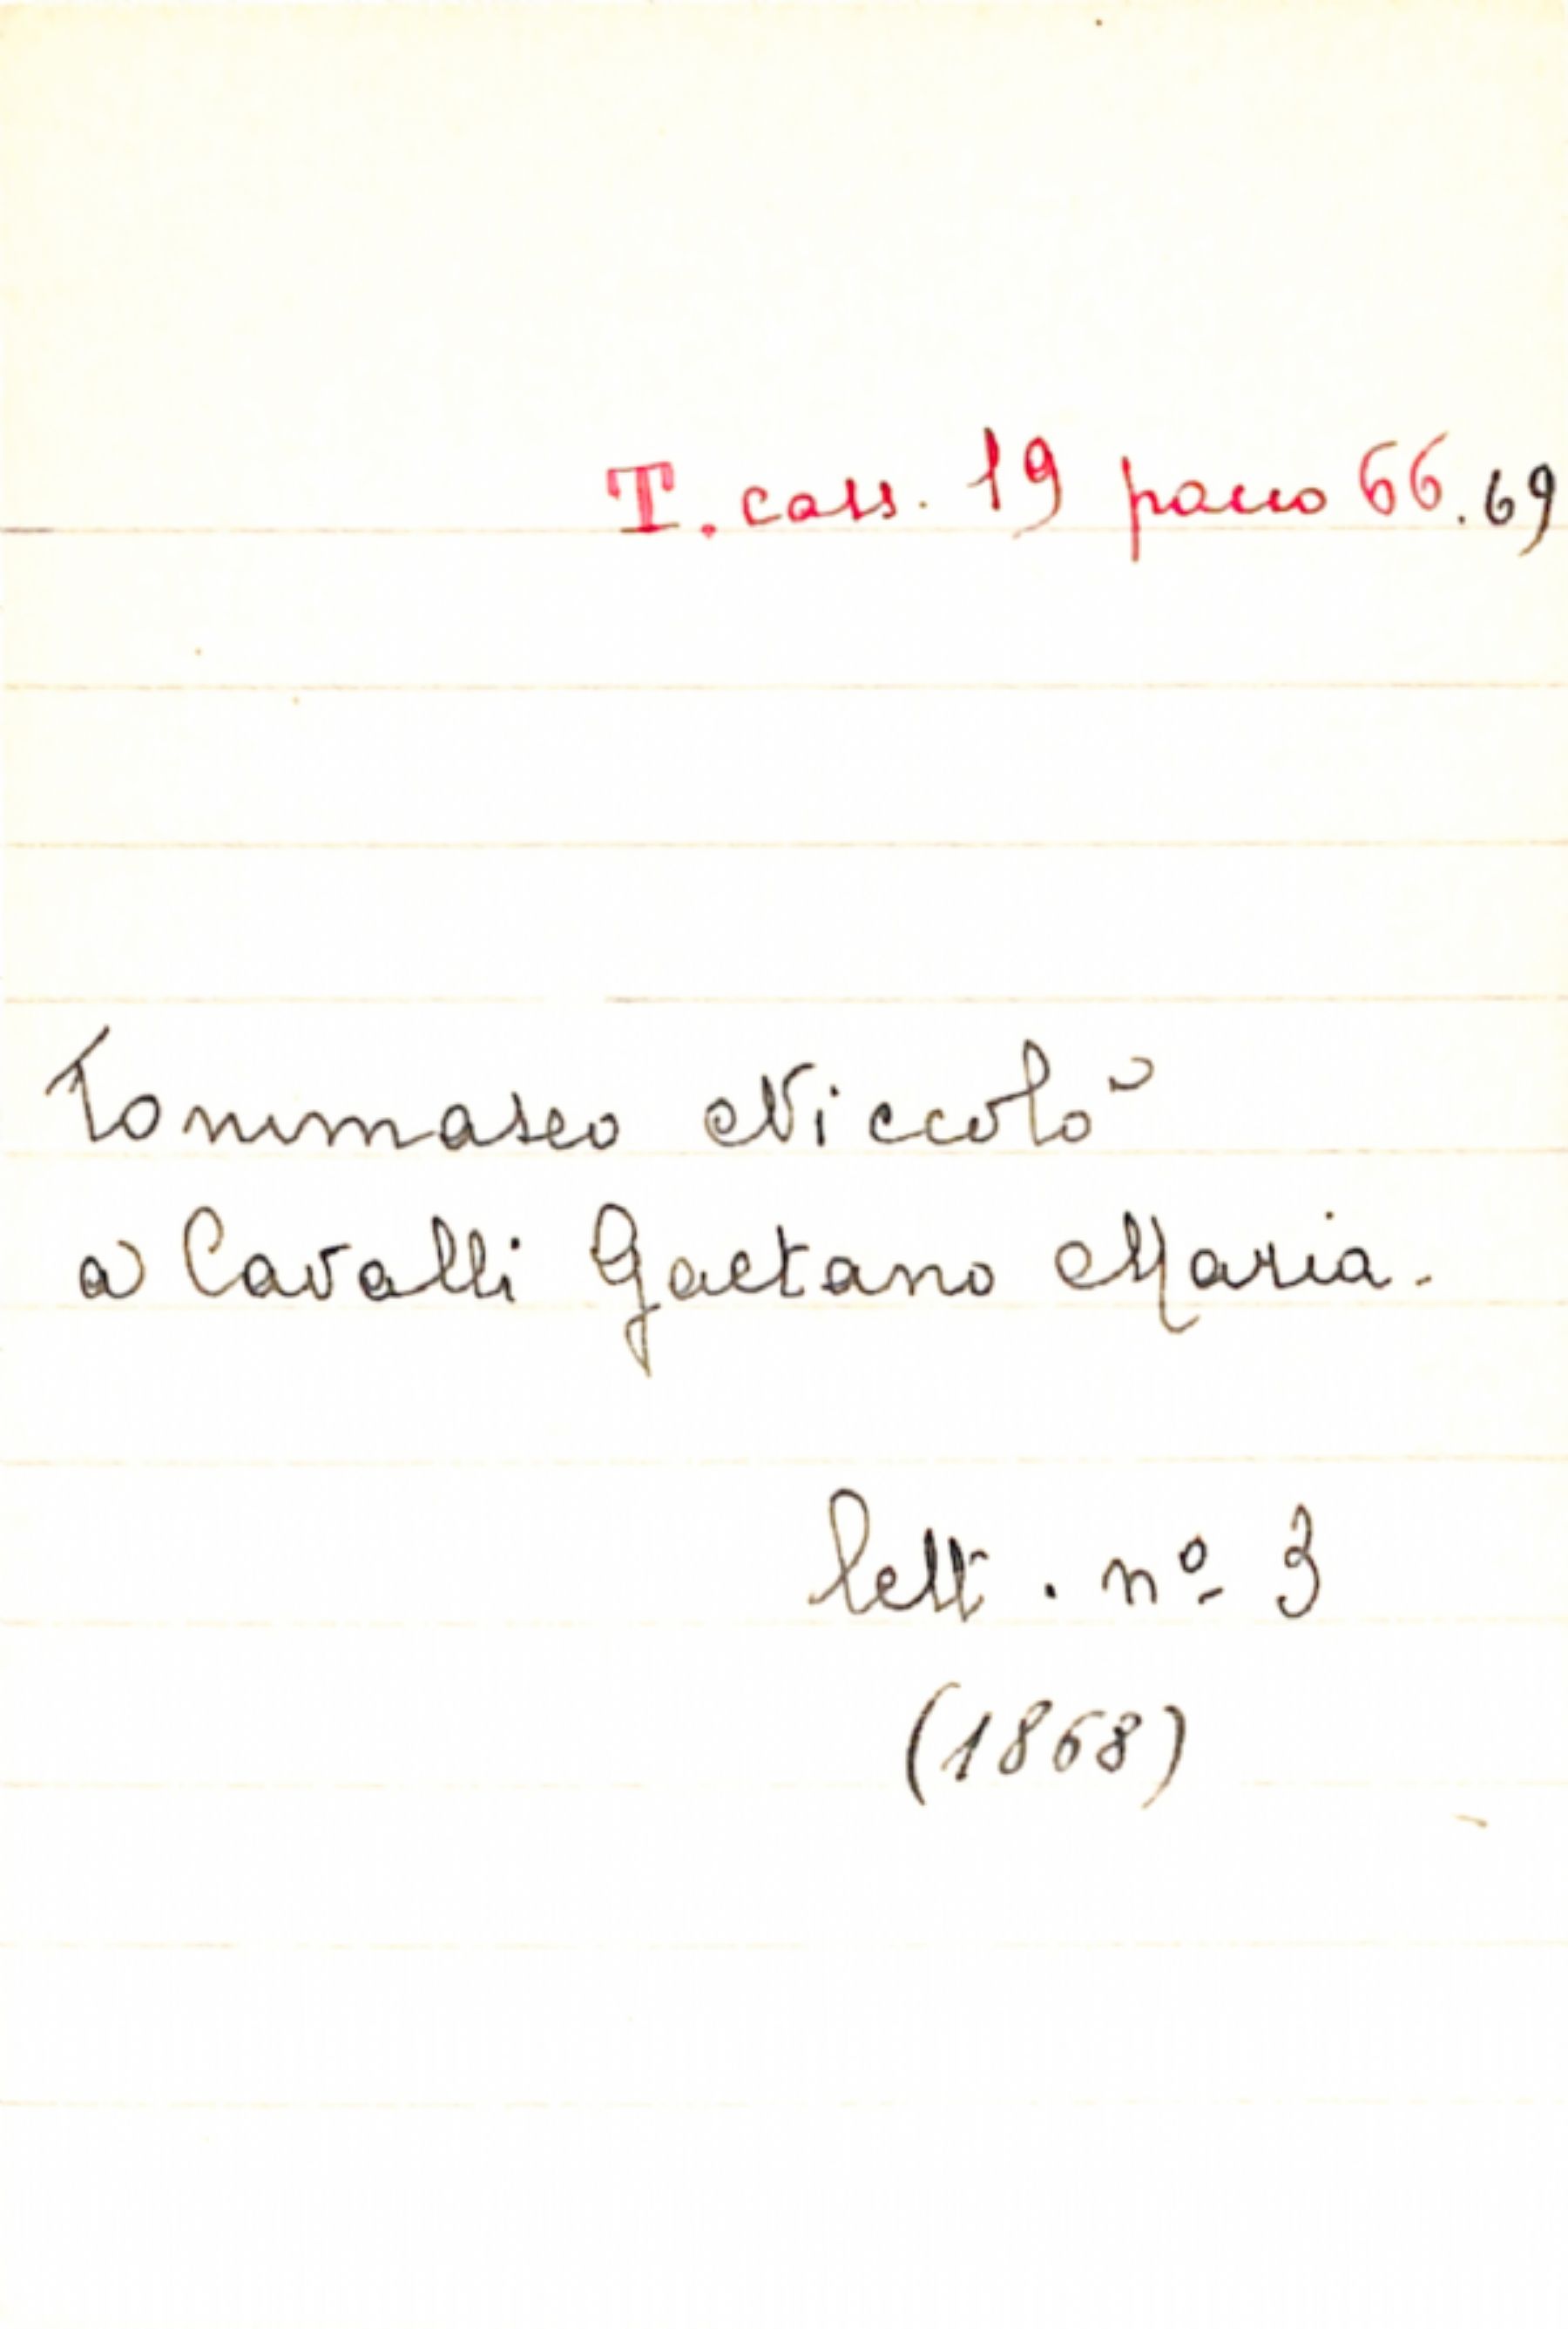 T. cass. 19 pacco 66.69
Tommaseo Niccolò
a Cavalli Gaetano Maria.
lett. nº 3
(1868)